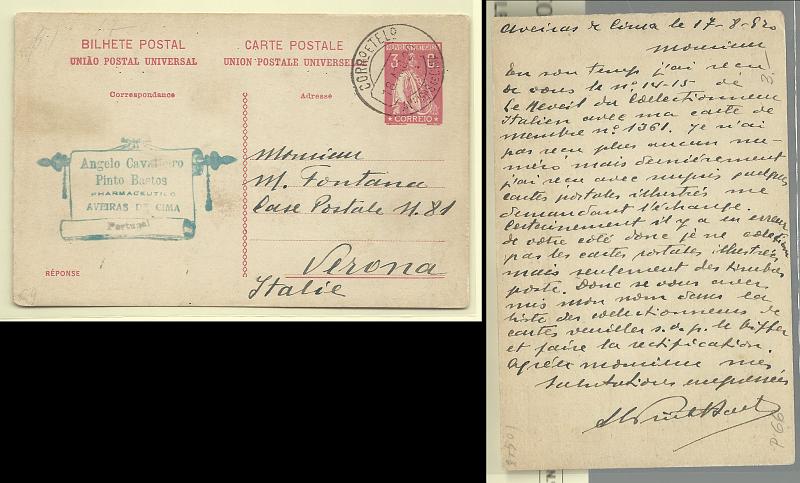 BILHETE POSTAL
UNIÃO POSTAL UNIVERSAL
CARTE POSTALE
UNION POSTALE UNIVERSELLE
3 C.
CORREIO
Correspondance
Adresse
Angelo Cavalleiro
Pinto Bastos
PHARMACEUTICO
AVEIRAS DE CIMA
Portugal
RÉPONSE
Monsieur
M. Fontana
Case Postale N. 81
Verona
Italie
Aveiras de Cima le 17-8-920
Monsieur
En son temps j'ai reçu
de vous le nº 14-15 de
Le Réveil du Collectionneur
Italien avec ma carte de
membre nº 1361. Je n'ai
pas reçu plus aucun nu-
méro mais dernièrement
j'ai reçu avec quelques
cartes postales illustrées me
demandant l'échange.
Certainement il y a en erreur
de votre côté donc je ne collectionne
pas les cartes postales illustrées
mais seulement des timbres
poste. Donc se vous avez
mis mon nom dans la
liste des collectionneurs de
cartes veuillez s.v.p. le biffer
et faire la rectification.
Agréez monsieur mes
salutations empressées